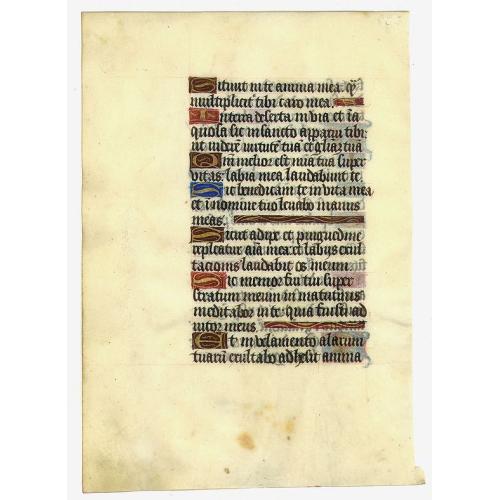 Sitivit in te anima mea. q̄
multiplicit tibi caro mea.
In terra deserta invia et īa
quosa sic in sancto apparui tibi
ut viderē virtutē tuā et gliaꝫ tuā
Qm̄ melior est mīa tua super
vitas: labia mea laudabunt te.
Sic benedicam te in vita mea
et ī nomine tuo levabo manus
meas.
Sicut adipe et pinguedine
repleatur aīa mea: et labiis exul
tacionis laudabit os meum.
Sic memor fui tui super
stratum meum in matutinis
meditabor in te: quia fuisti ad
iutor meus.
Et in velamento alarum
tuarū exultabo adhesit anima